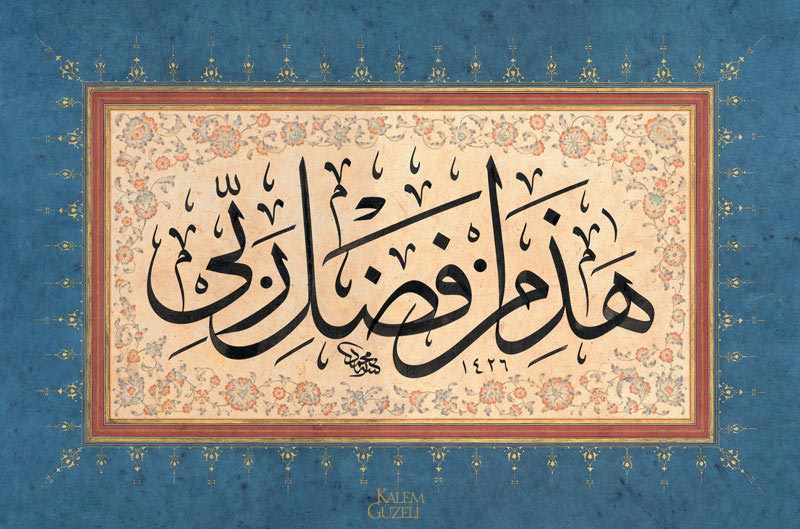 هَذَا مِنْ فَضْلِ رَبِّي
١٤٢٦
KALEM
GUZELI